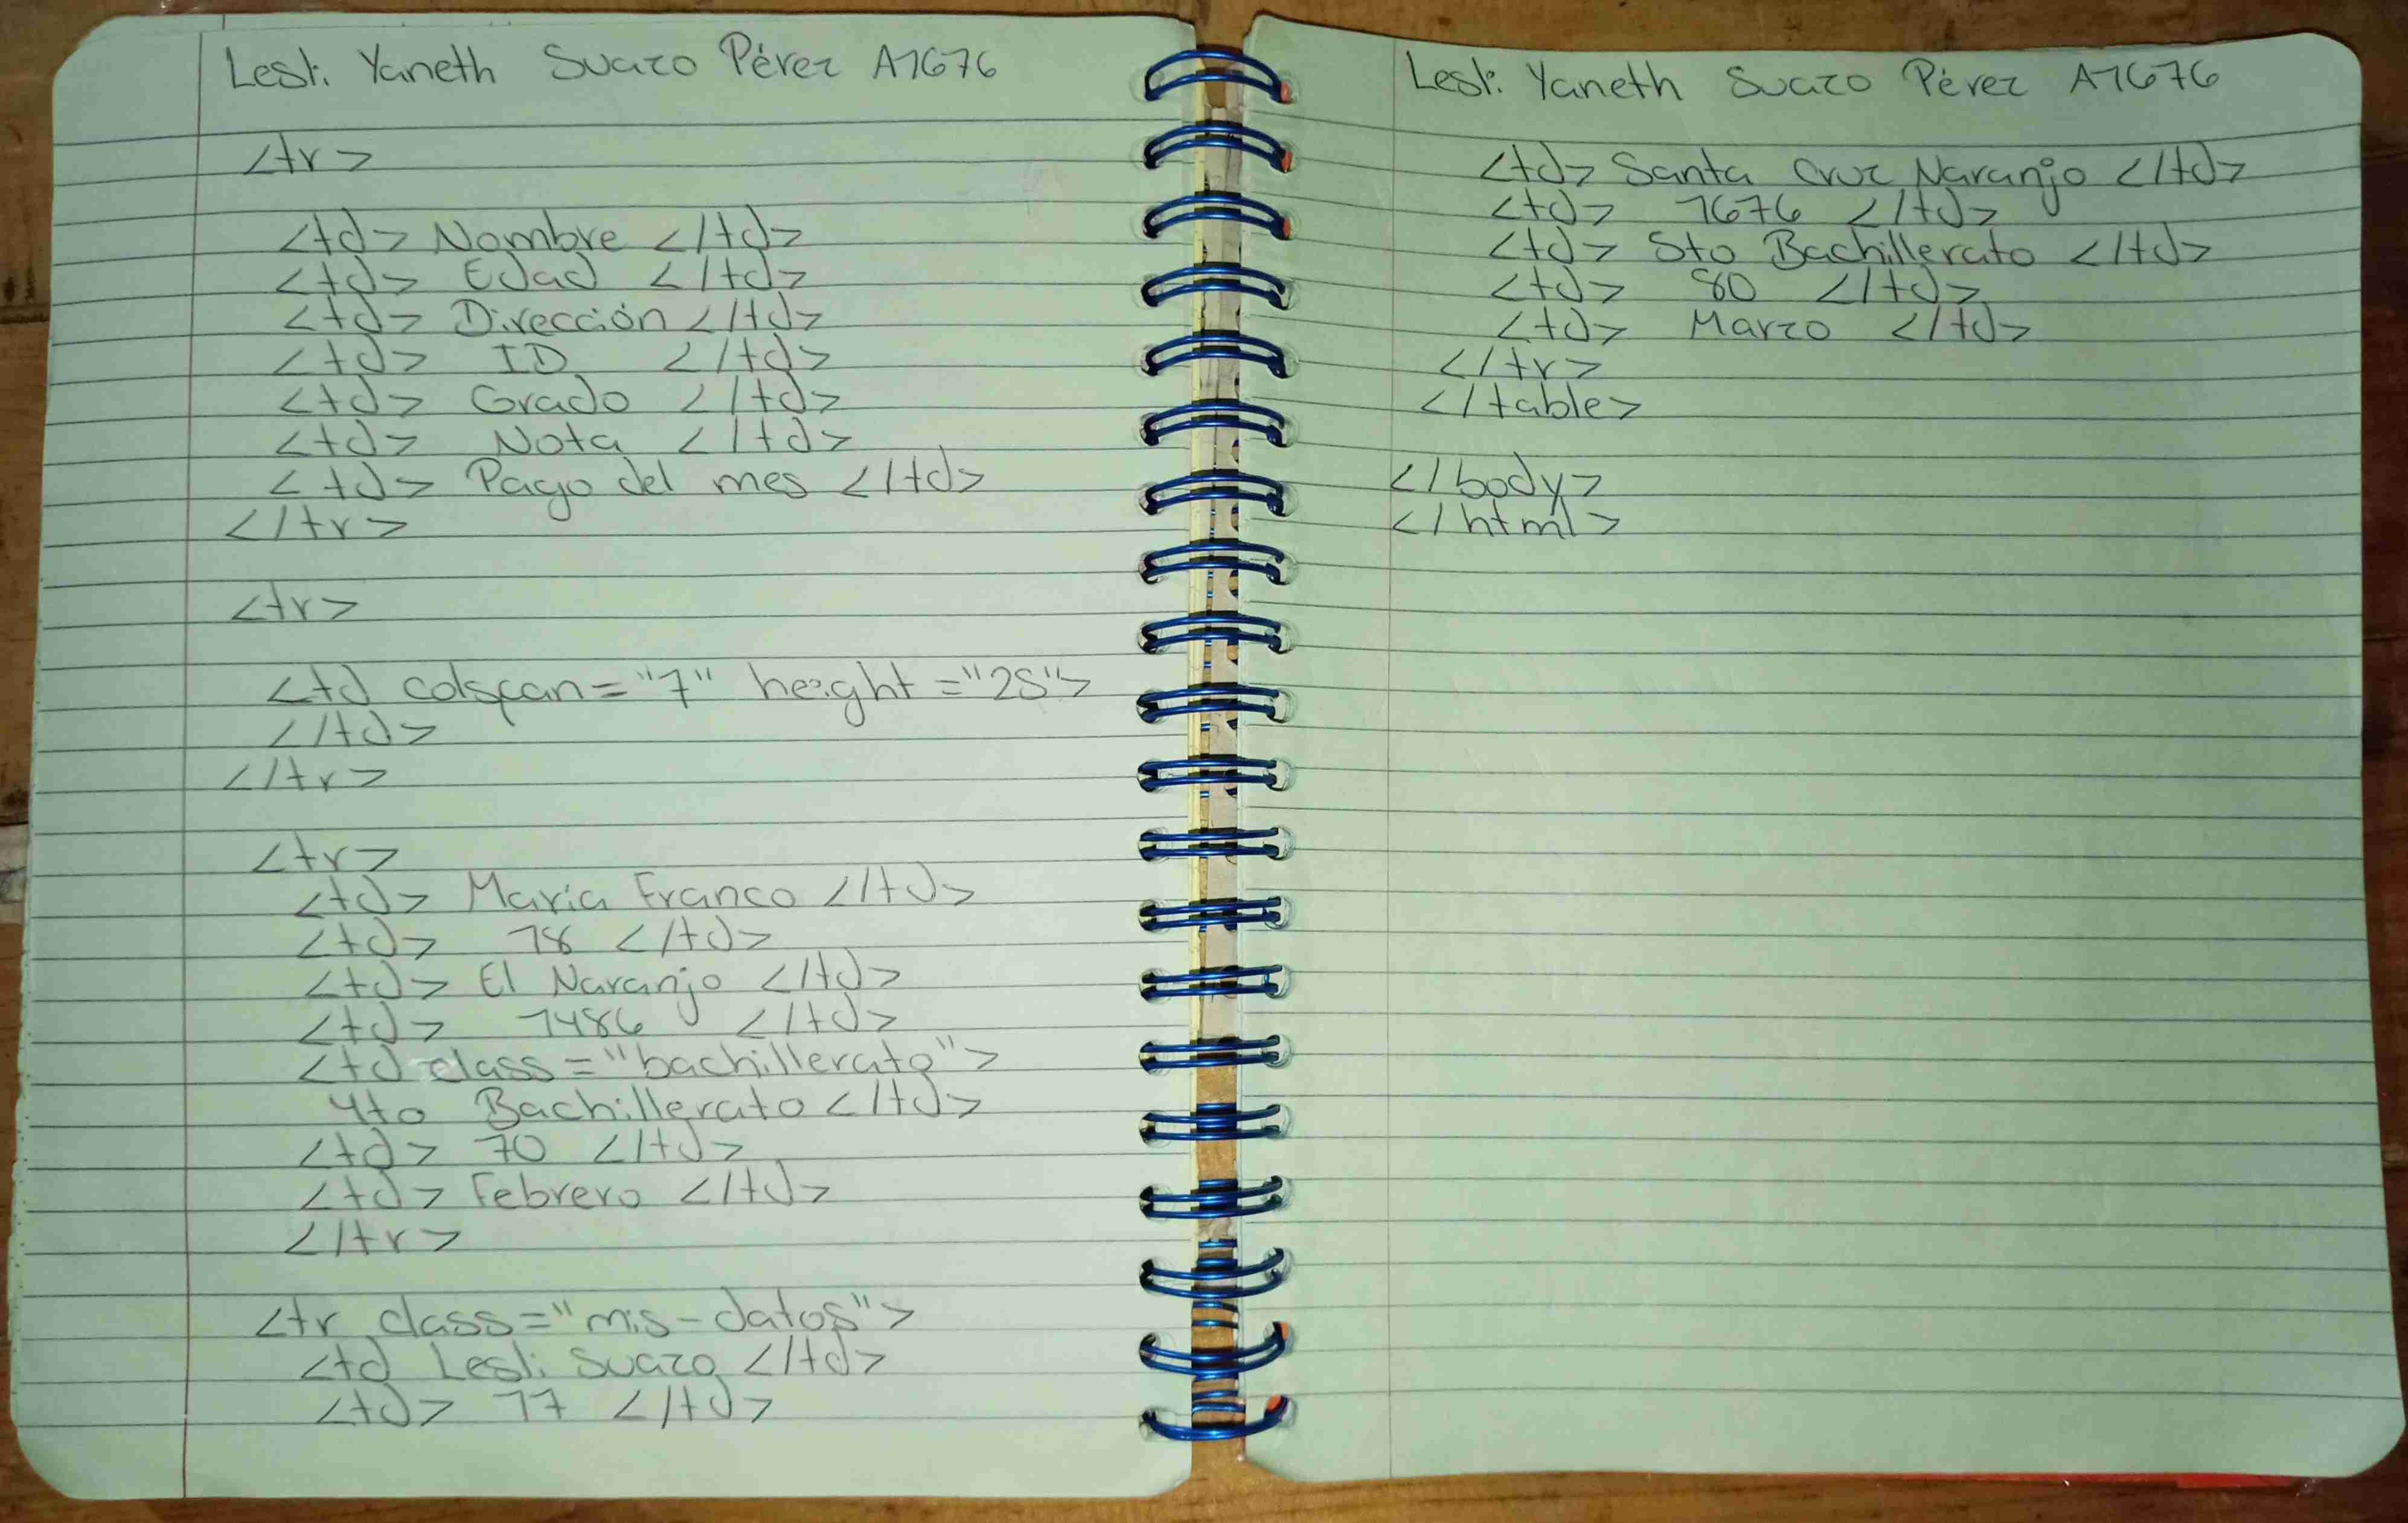 Lesli Yaneth Suazo Pérez A1676
<tr>
<td> Nombre </td>
<td> Edad </td>
<td> Dirección </td>
<td> ID </td>
<td> Grado </td>
<td> Nota </td>
<td> Pago del mes </td>
</tr>
<tr>
<td colspan="7" height="25">
</td>
</tr>
<tr>
<td> Maria Franco </td>
<td> 18 </td>
<td> El Naranjo </td>
<td> 1486 </td>
<td class="bachillerato">
4to Bachillerato </td>
<td> 70 </td>
<td> Febrero </td>
</tr>
<tr class="mis-datos">
<td Lesli Suazo </td>
<td> 17 </td>
Lesli Yaneth Suazo Pérez A1676
<td> Santa Cruz Naranjo </td>
<td> 1676 </td>
<td> 5to Bachillerato </td>
<td> 80 </td>
<td> Marzo </td>
</tr>
</table>
</body>
</html>